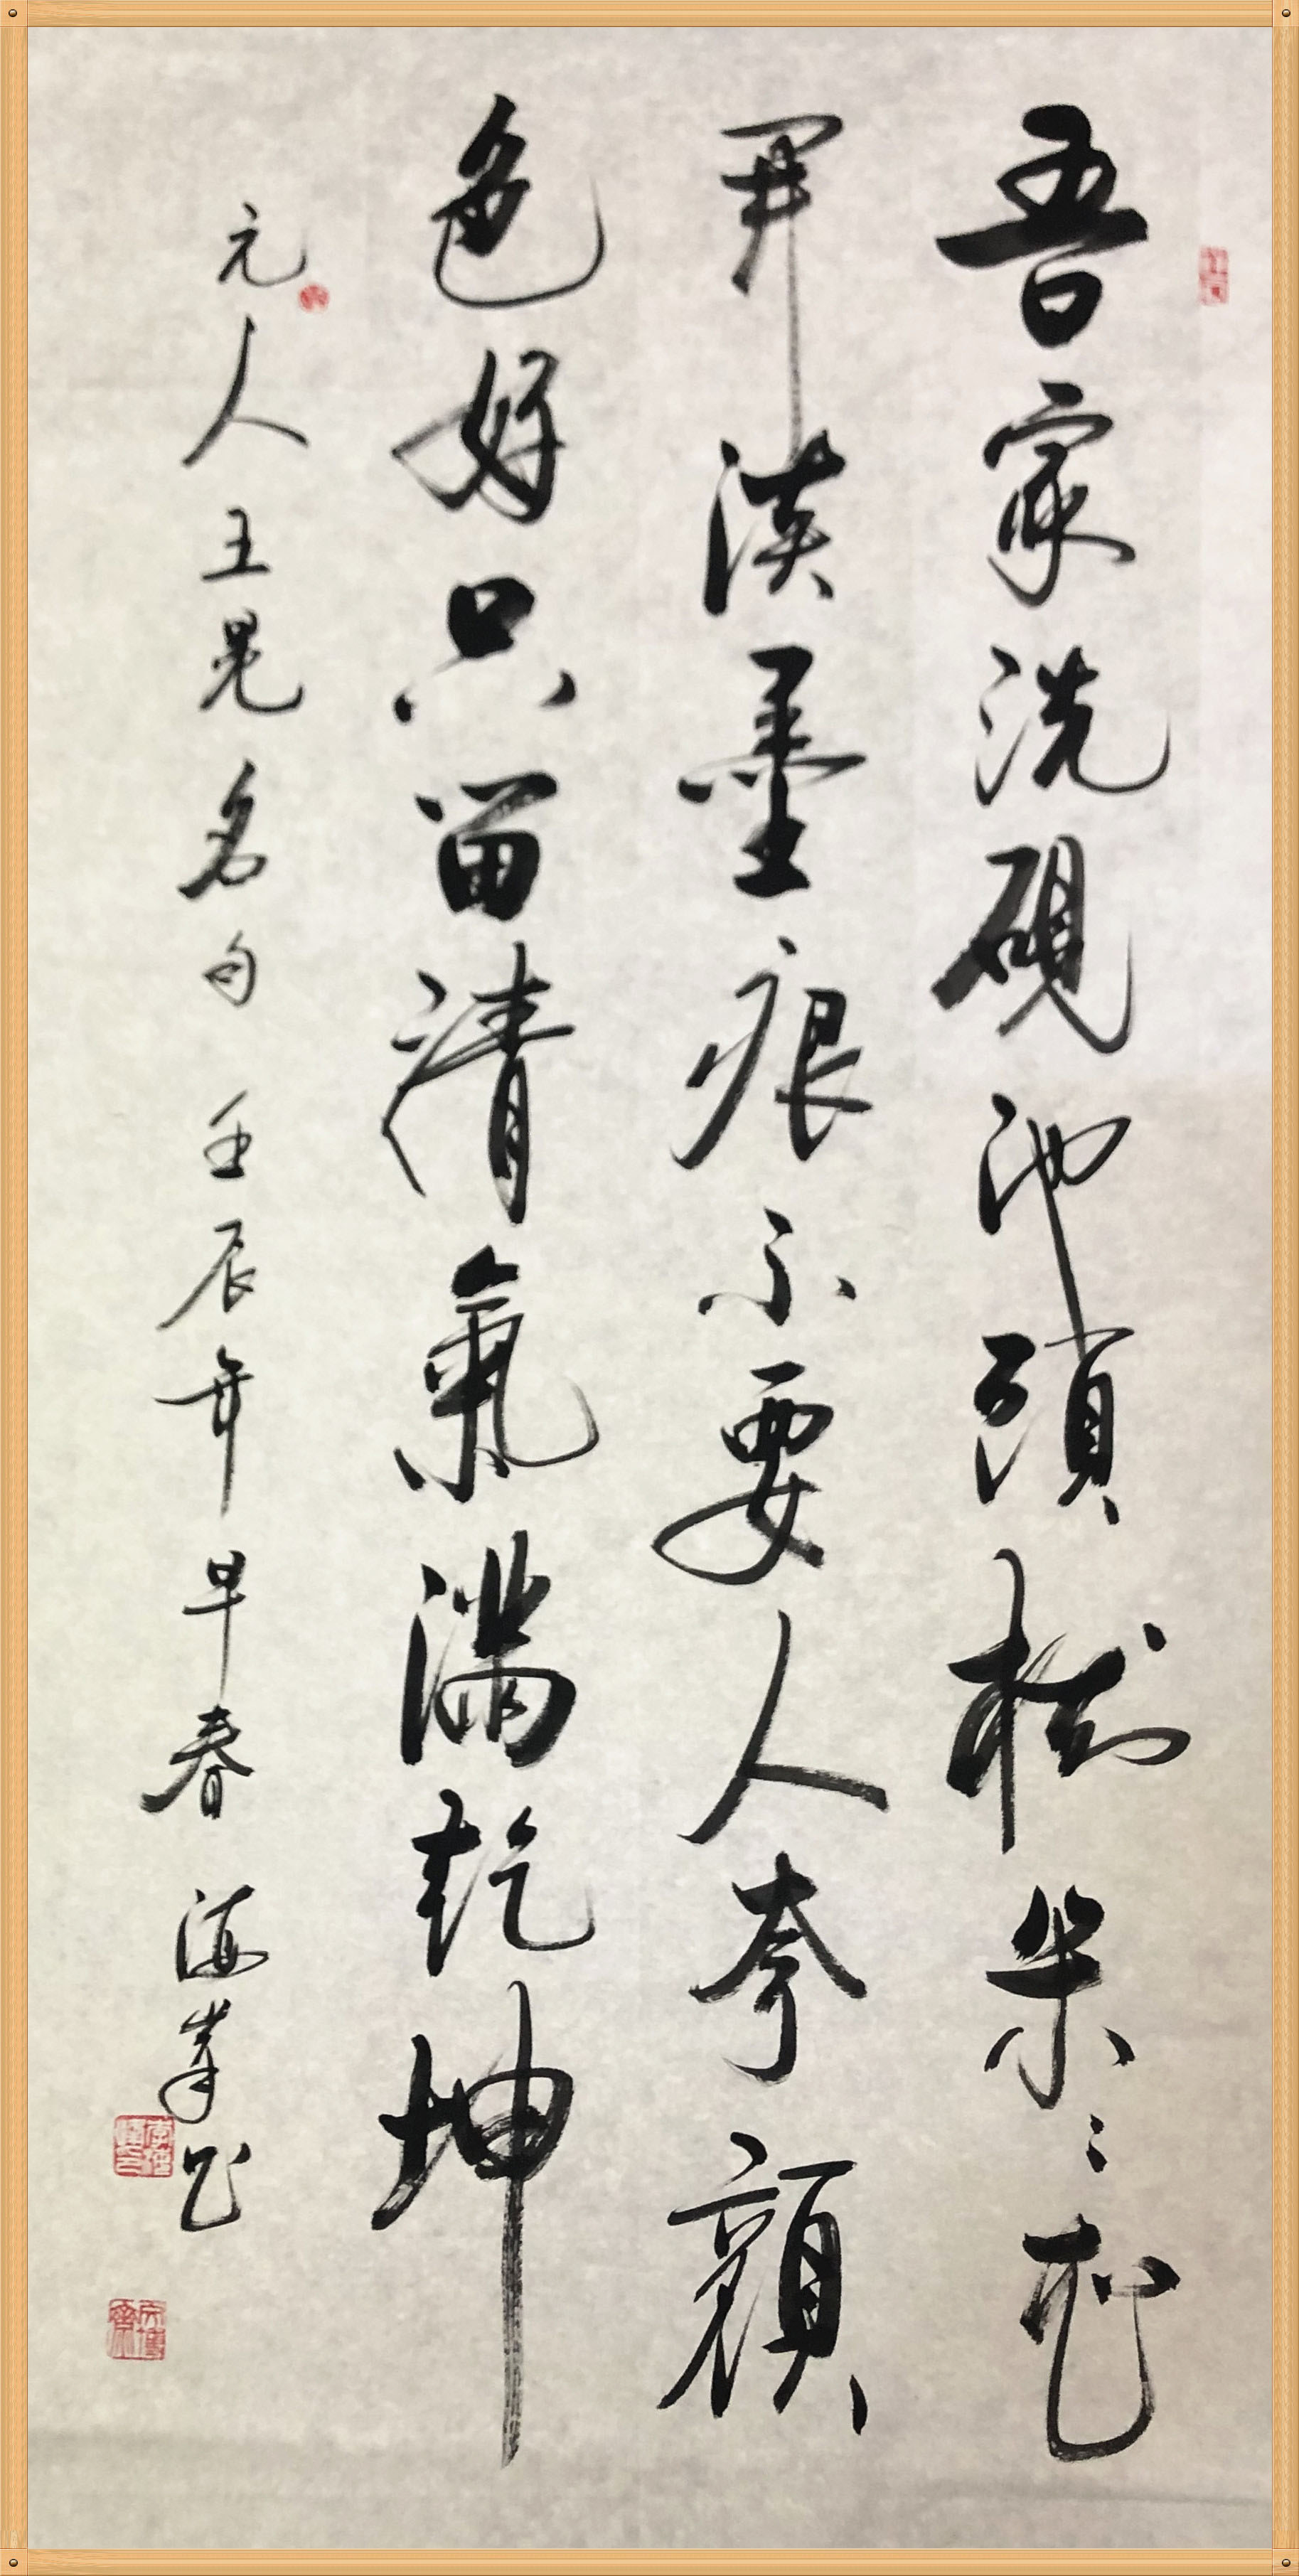 吾家洗硯池頭樹朵々花
開淡墨痕不要人夸顏
色好只留清氣滿乾坤
元人王冕名句壬辰年早春海峯书